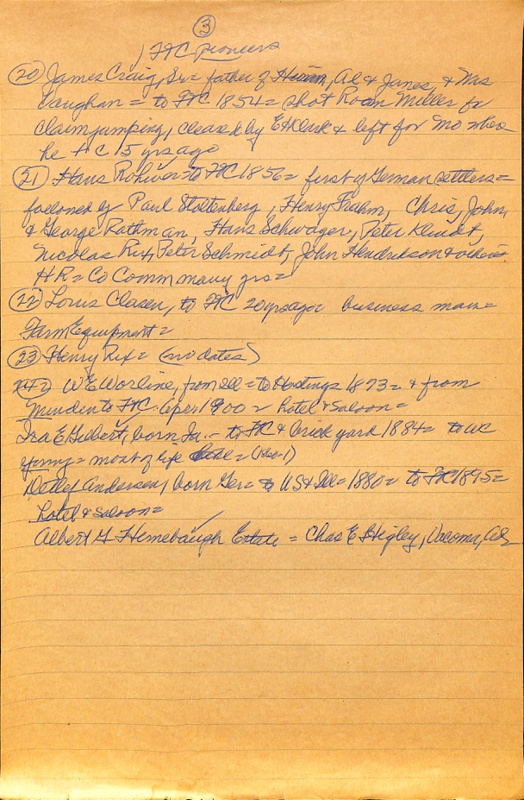 ③
FTC Pioneers
(20) James Craig, Sr = father of Hiram, Al & James, & Mrs
Vaughan = to FTC 1854 = shot Roan Miller for
claim jumping, cleared by E H Clark & left for Mo where
he 15 yrs ago
(21) Hans Rohwer to FTC 1856 = first of German settlers =
followed by Paul Stoltenberg, Henry Frahm, Chris, John,
& George Rathman, Hans Schwager, Peter Klundt,
Nicolas Rix, Peter Schmidt, John Hendrickson & others
H R = Co Comm many yrs =
(22) Louis Clasen, to FTC 20 yrs ago business man =
Farm Equipment =
(23) Henry Rix = (no dates)
W E Worline, from Ill = to Hastings 1873 = & from
Minden to FTC Apr 1900 = hotel & saloon =
Ira E Gilbert, born Ia. = to FTC & brick yard 1884 = to
= most of life = (No 1)
Detlef Andersen, born Ger = to US & Ill = 1880 = to FTC 1895 =
hotel & saloon =
Albert G Hemebaugh Estate = Chas E Higley,